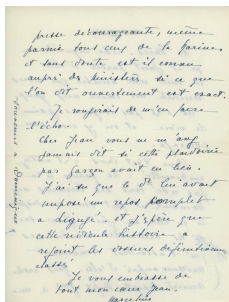 presse décourageante, même
parmi tous ceux de la
et sans doute est il connu
auprès des ministres si ce que
l'on dit ouvertement est exact.
Je rougirais de m'en faire
l'écho.
Cher Jean vous ne m'avez
jamais dit si cette plaidoirie
par garçon avait eu lieu.
J'ai su que le Dr lui avait
imposé un repos complet
et j'espère que
cette ridicule histoire a
rejoint les dossiers définitivement
classés
Je vous embrasse de
tout mon cœur Jean.